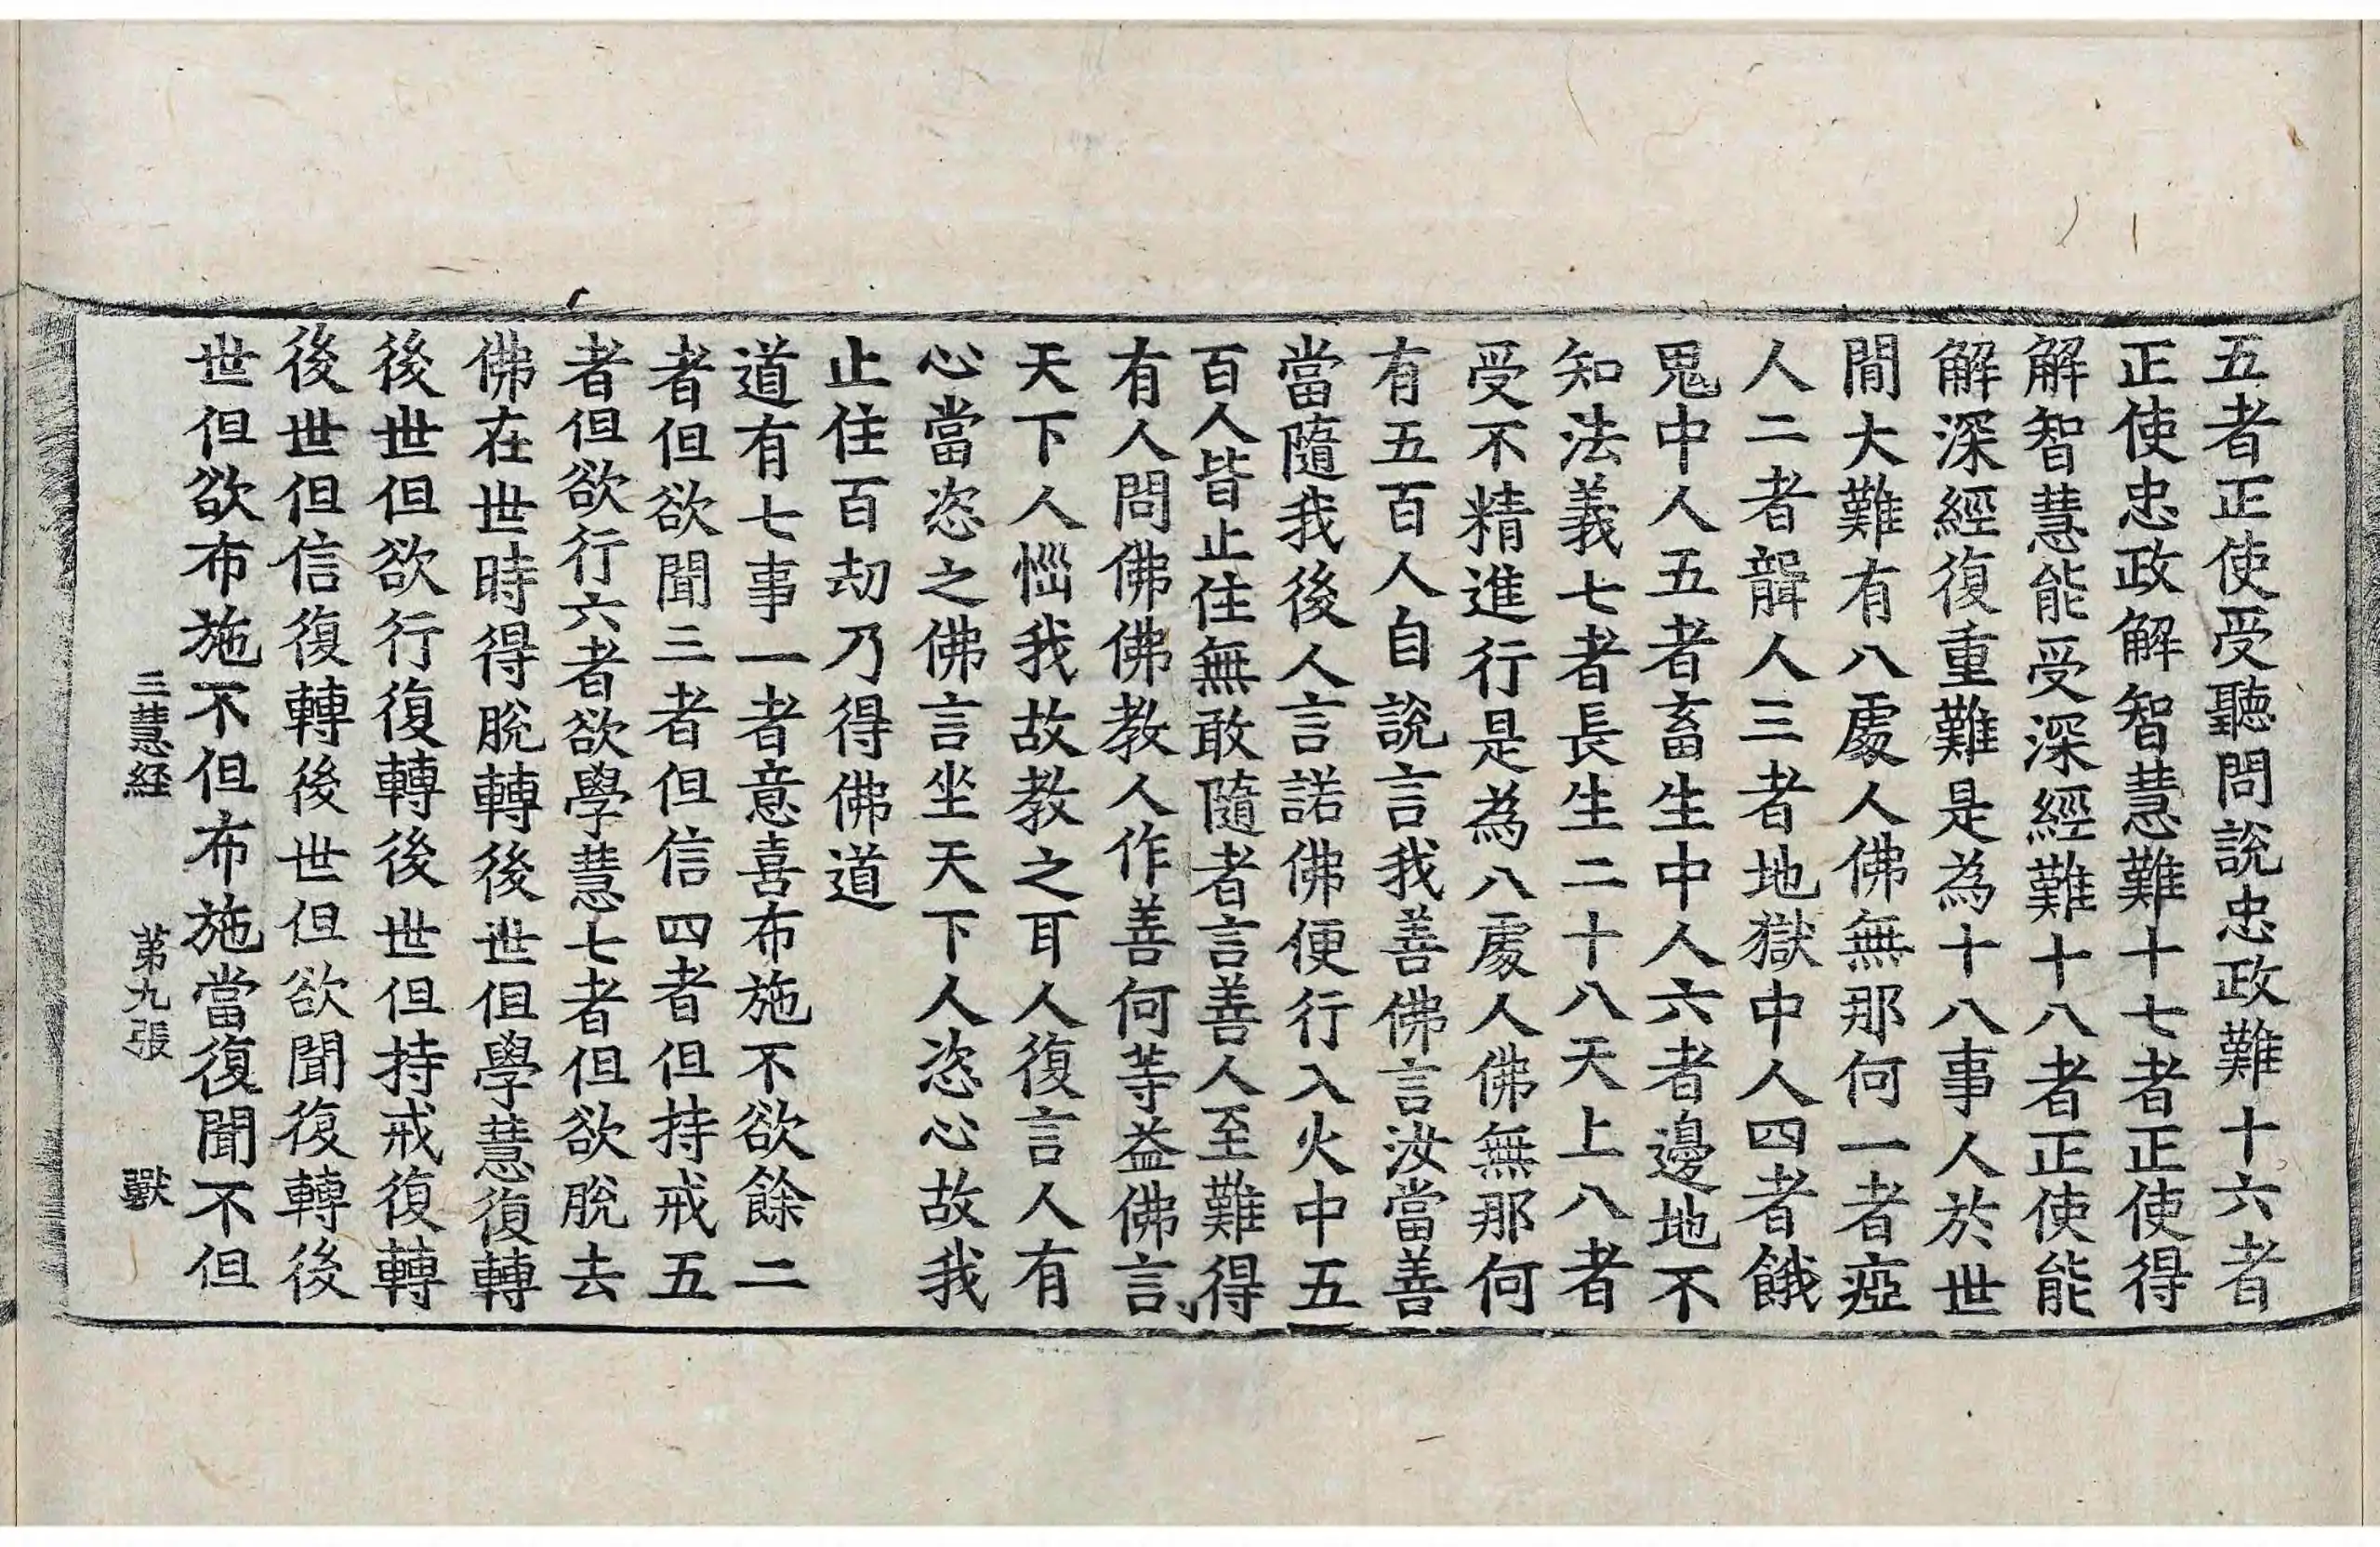 五者正使受聽問說忠政難十六者
正使忠政解智慧難十七者正使得
解智慧能受深經難十八者正使能
解深經復重難是為十八事人於世
間大難有八處人佛無那何一者瘂
人二者聾人三者地獄中人四者餓
鬼中人五者畜生中人六者邊地不
知法義七者長生二十八天上八者
受不精進行是為八處人佛無那何
有五百人自說言我善佛言汝當善
當隨我後人言諾佛便行入火中五
百人皆止住無敢隨者言善人至難得
有人問佛佛教人作善何等益佛言
天下人惱我故教之耳人復言人有
心當恣之佛言坐天下人恣心故我
止住百劫乃得佛道
道有七事一者意喜布施不欲餘二
者但欲聞三者但信四者但持戒五
者但欲行六者欲學慧七者但欲脫去
佛在世時得脫轉後世但學慧復轉
後世但欲行復轉後世但持戒復轉
後世但信復轉後世但欲聞復轉後
世但欲布施不但布施當復聞不但
三慧経 第九張 獸